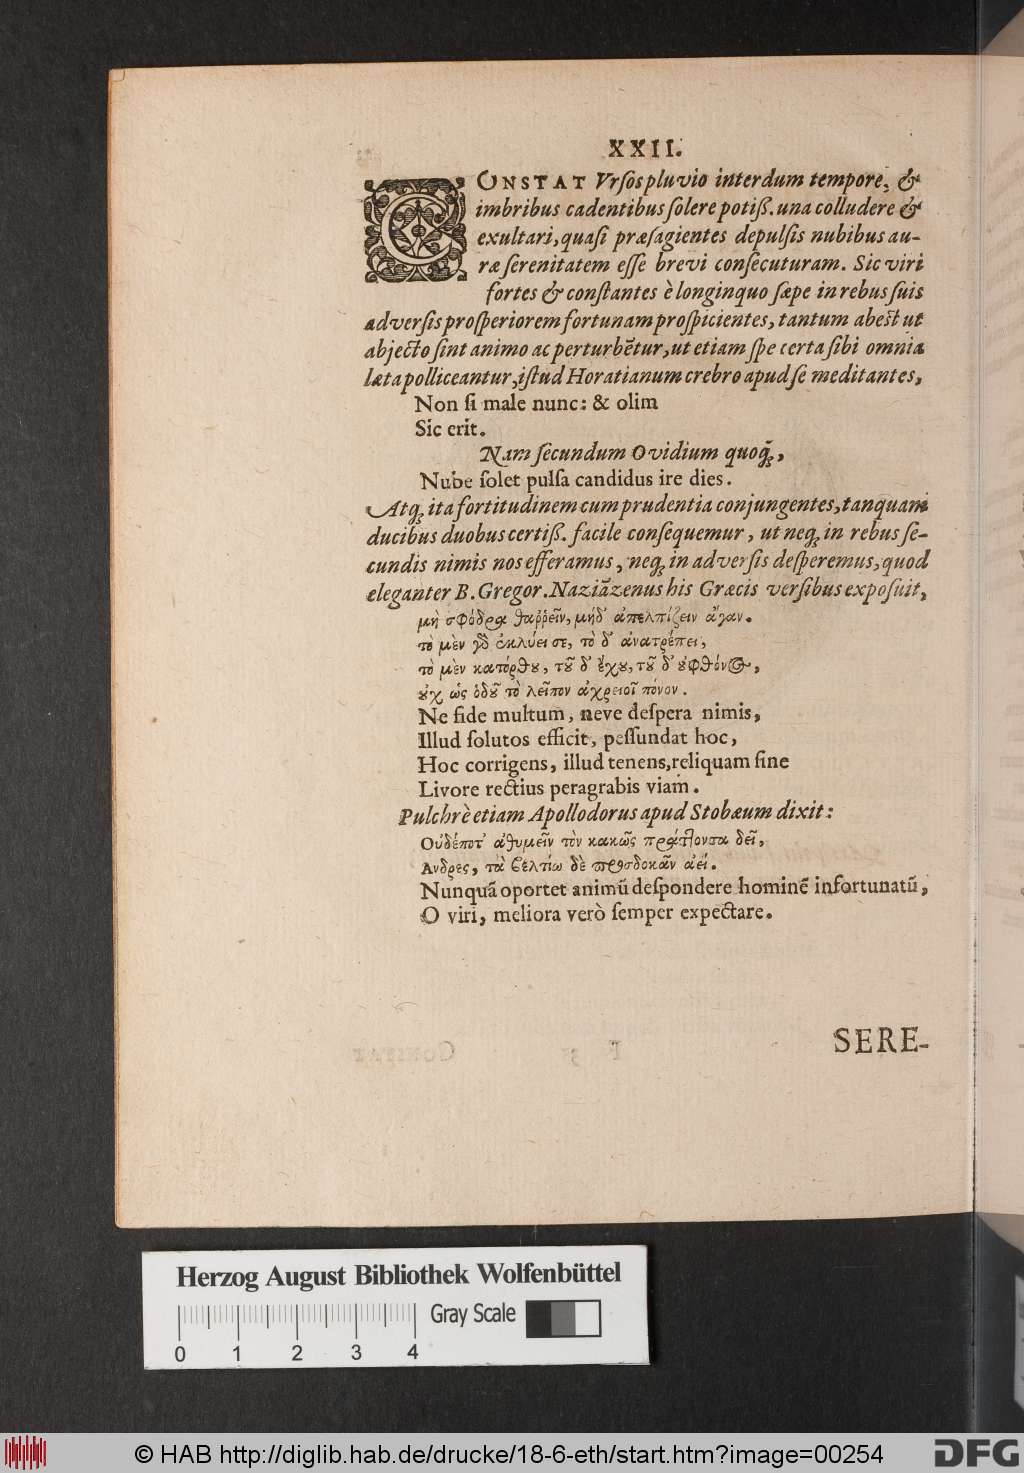 XXII.
CONSTAT Vrſos pluvio interdum tempore, &
imbribus cadentibus ſolere potiſſ. una colludere &
exultari, quaſi præſagientes depulſis nubibus au-
ræ ſerenitatem eſſe brevi conſecuturam. Sic viri
fortes & conſtantes è longinquo ſæpe in rebus ſuis
adverſis proſperiorem fortunam proſpicientes, tantum abest ut
abjecto ſint animo ac perturbẽtur, ut etiam ſpe certa ſibi omnia
læta polliceantur, iſtud Horatianum crebro apud ſe meditantes,
Non ſi male nunc: & olim
Sic erit.
Nam ſecundum Ovidium quoq;,
Nube ſolet pulſa candidus ire dies.
Atq; ita fortitudinem cum prudentia conjungentes, tanquam
ducibus duobus certiſſ. facile conſequemur, ut neq; in rebus ſe-
cundis nimis nos efferamus, neq; in adverſis deſperemus, quod
eleganter B. Gregor. Naziãzenus his Græcis verſibus expoſuit,
μὴ σφόδρα θαῤῥεῖν, μήδ' ἀπελπίζειν ἄγαν.
τὸ μὲν γὸ ἐκλύει σε, τὸ δ' ἀνατρέπει,
τὸ μὲν κατόρθȣ, τȣ͂ δ' ἔχȣ, τȣ͂ δ' ȣ φθόνος,
ȣχ ὡς ὁδȣ͂ τὸ λεῖπον ἀχρειοῖ πόνον.
Ne fide multum, neve deſpera nimis,
Illud ſolutos efficit, peſſundat hoc,
Hoc corrigens, illud tenens, reliquam ſine
Livore rectius peragrabis viam.
Pulchrè etiam Apollodorus apud Stobæum dixit:
Οὐδέποτ' ἀθυμεῖν τὸν κακῶς πράττοντα δεῖ,
Ανδρες, τὰ βελτίω δὲ προσδοκᾶν ἀεί.
Nunquã oportet animũ deſpondere hominẽ infortunatũ,
O viri, meliora verò ſemper expectare.
SERE-
Herzog August Bibliothek Wolfenbüttel
Gray Scale
0 1 2 3 4
© HAB http://diglib.hab.de/drucke/18-6-eth/start.htm?image=00254
DFG